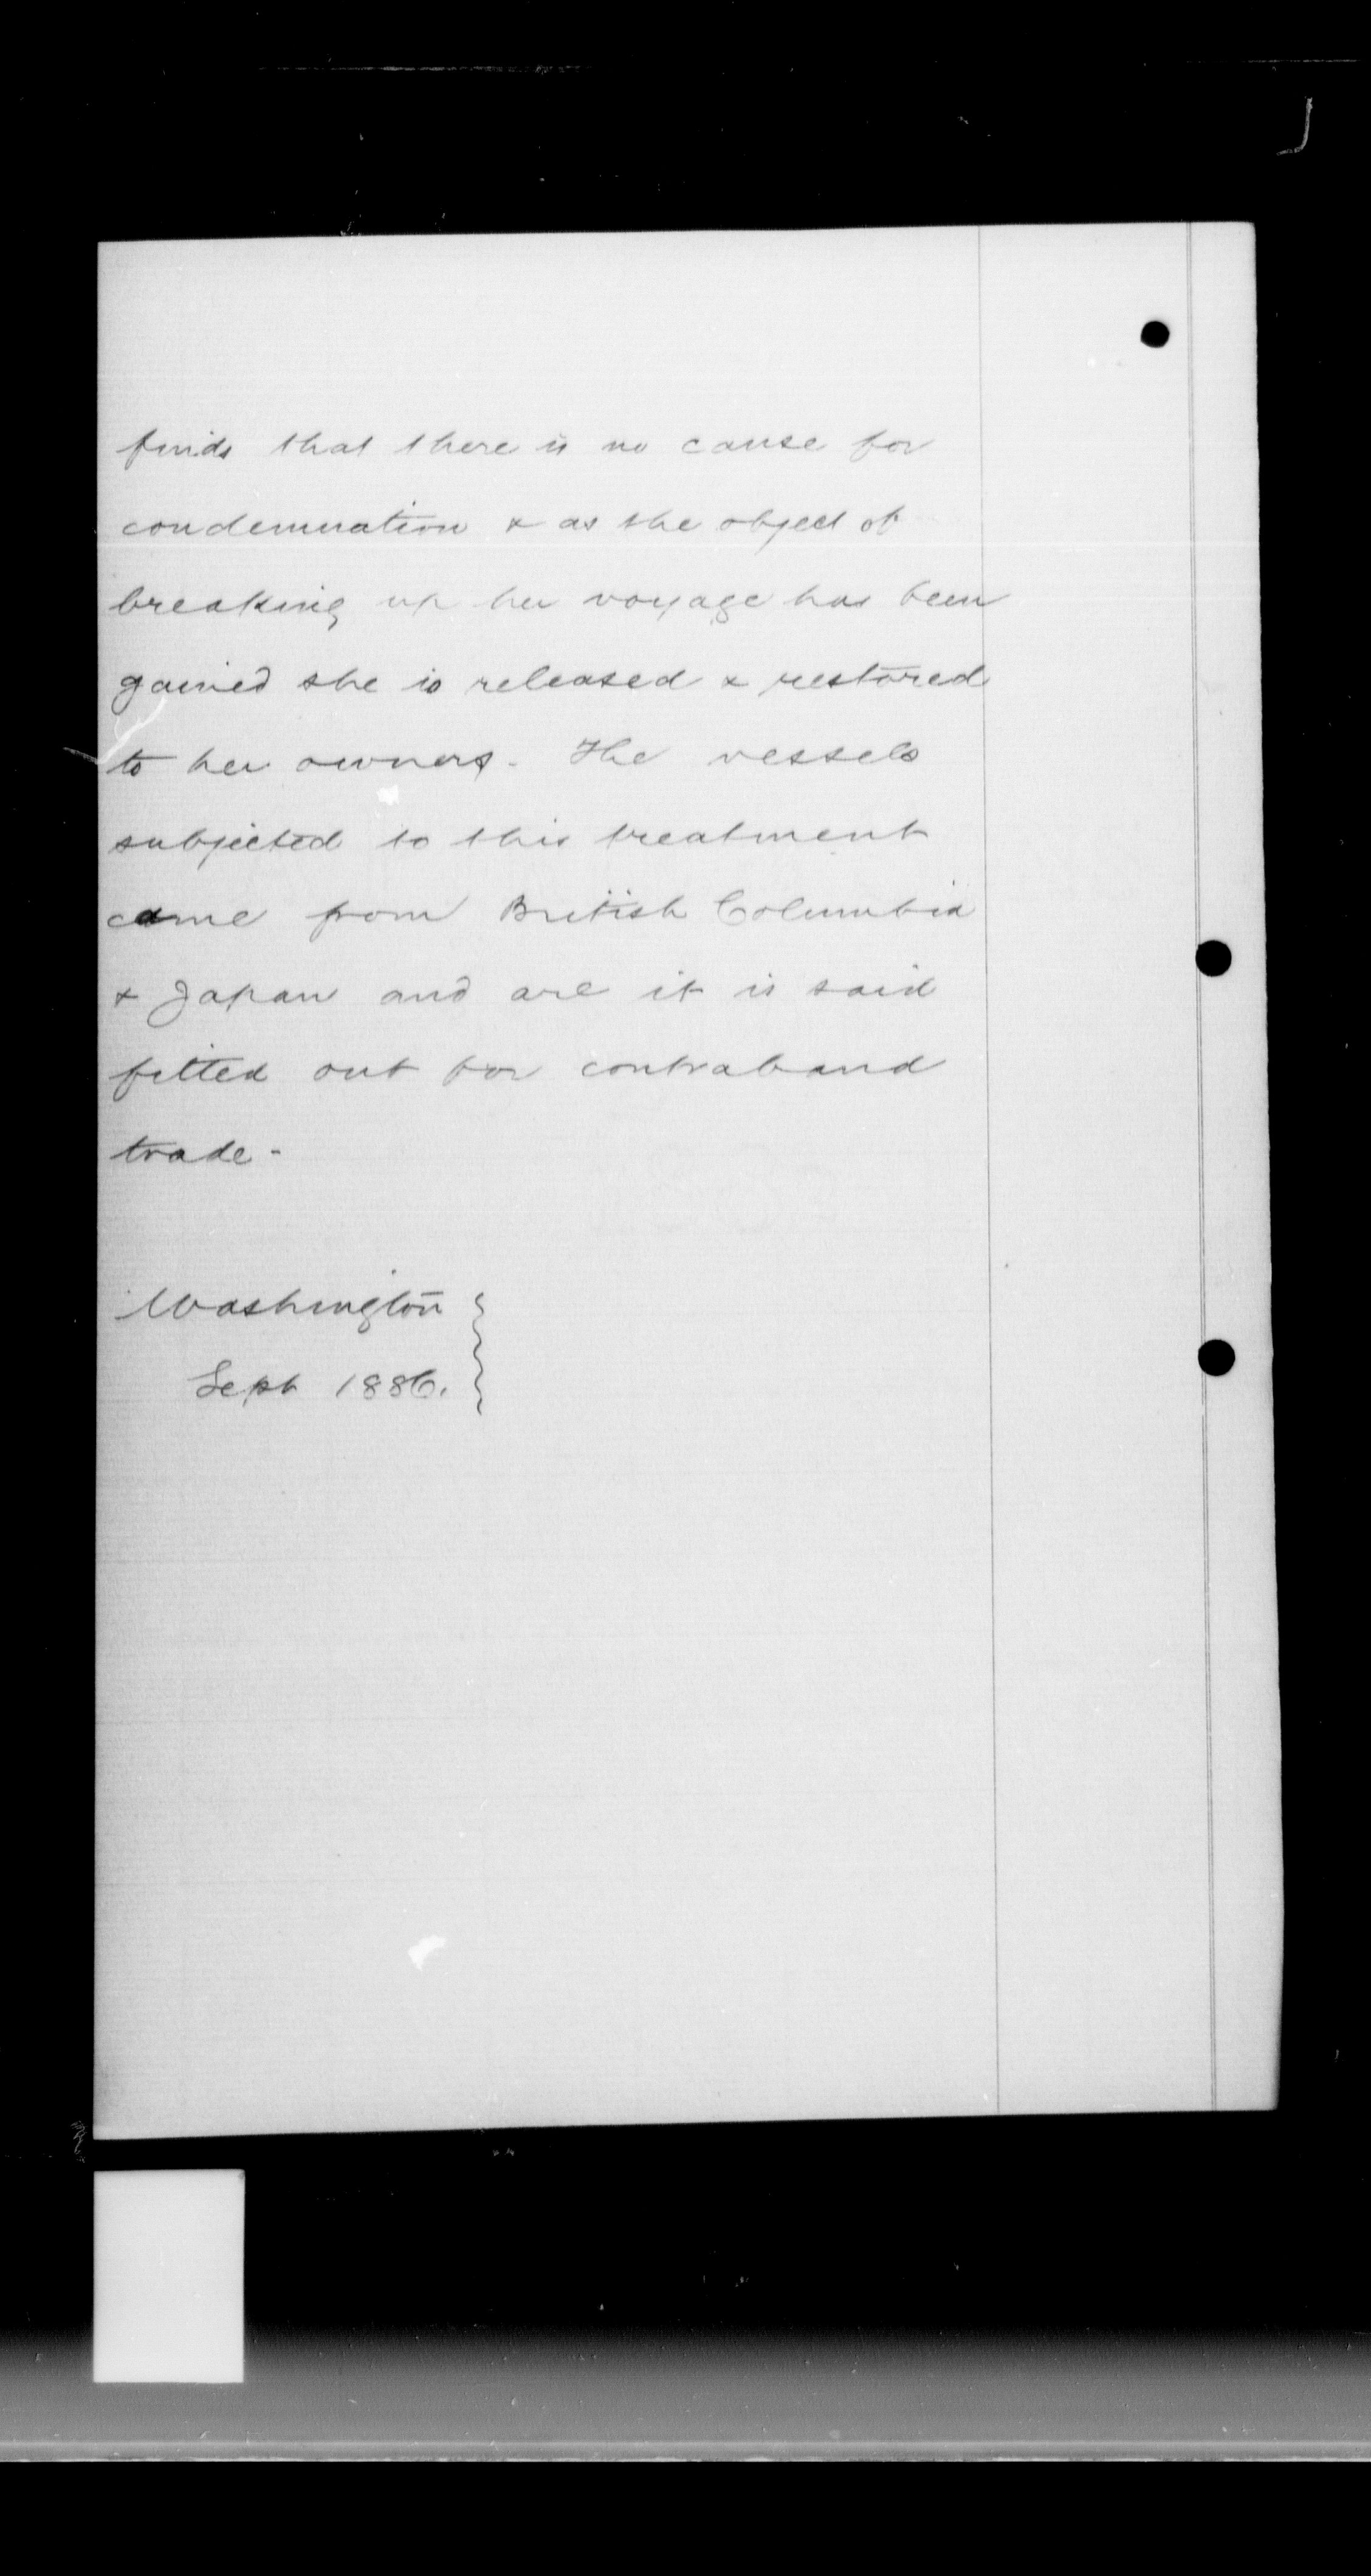 finds that there is no cause for
condemnation & as the object of
breaking up her voyage has been
gained she is released & restored
to her owners. The vessels
subjected to this treatment
came from British Columbia
& Japan and are it is said
fitted out for contraband
trade -
Washington
Sept 1886.